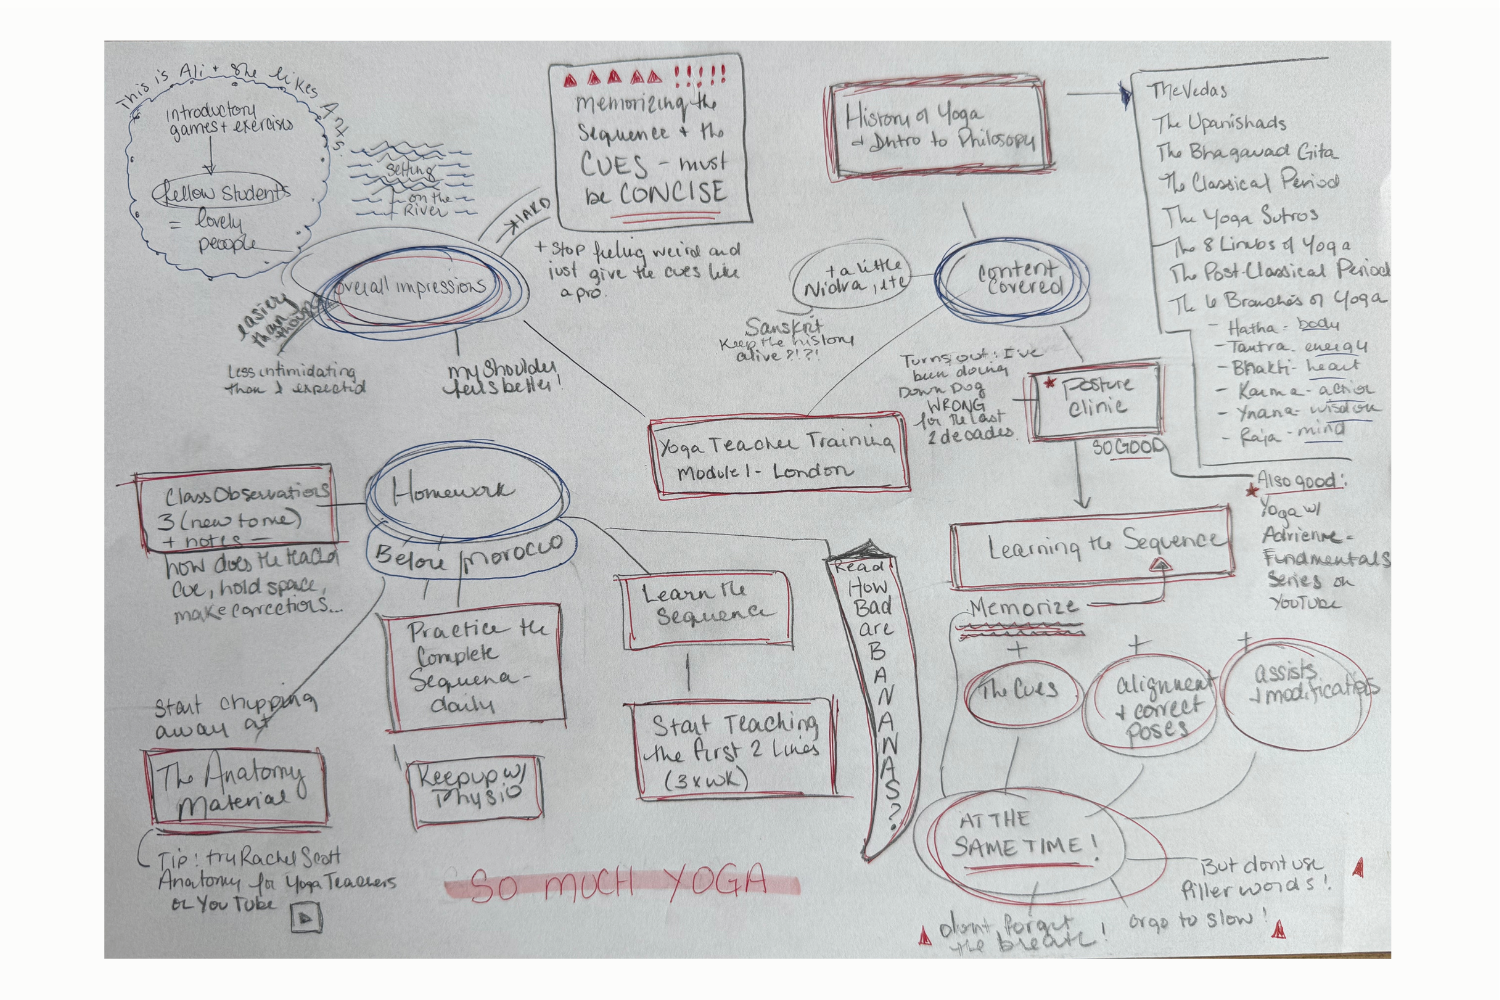 This is Ali + she likes Ants.
introductory
games + exercises
fellow students
= lovely
people
Setting
on the
River
memorizing the
Sequence + the
CUES - must
be CONCISE
HARD
+ Stop feeling weird and
just give the cues like
a pro.
overall impressions
easier
than I
thought
Less intimidating
than I expected
my shoulder
feels better!
History of Yoga
+ Intro to Philosophy
The Vedas
The Upanishads
The Bhagavad Gita
The Classical Period
The Yoga Sutros
The 8 Limbs of Yoga
The Post-Classical Period
The 6 Branches of Yoga
- Hatha - body
- Tantra - energy
- Bhakti - heart
- Karma - action
- Ynana - wisdom
- Raja - mind
Content
Covered
+ a little
Nidra, etc
Sanskrit
Keep the history
alive?!?!
Turns out: I've
been doing
Down Dog
WRONG
for the last
2 decades.
Posture
Clinic
SO GOOD
Also good:
Yoga w/
Adriene -
Fundmentals
Series on
YouTube
Yoga Teacher Training
Module 1 - London
Homework
Before Morocco
Class Observations
3 (new to me)
+ notes -
how does the teacher
cue, hold space,
make corrections...
Start chipping
away at
The Anatomy
Material
Tip: try Rachel Scott
Anatomy for Yoga Teachers
on YouTube
Practice the
Complete
Sequence -
daily
Keep up w/
Physio
Learn the
Sequence
Start Teaching
the first 2 Lines
(3 x wk)
Read:
How
Bad
are
B
A
N
A
N
A
S
?
Learning the Sequence
Memorize
+
The Cues
+
alignment
+ correct
poses
+
assists
+ modifications
AT THE
SAME TIME!
But dont use
filler words!
or go to slow!
dont forget
the breath!
SO MUCH YOGA